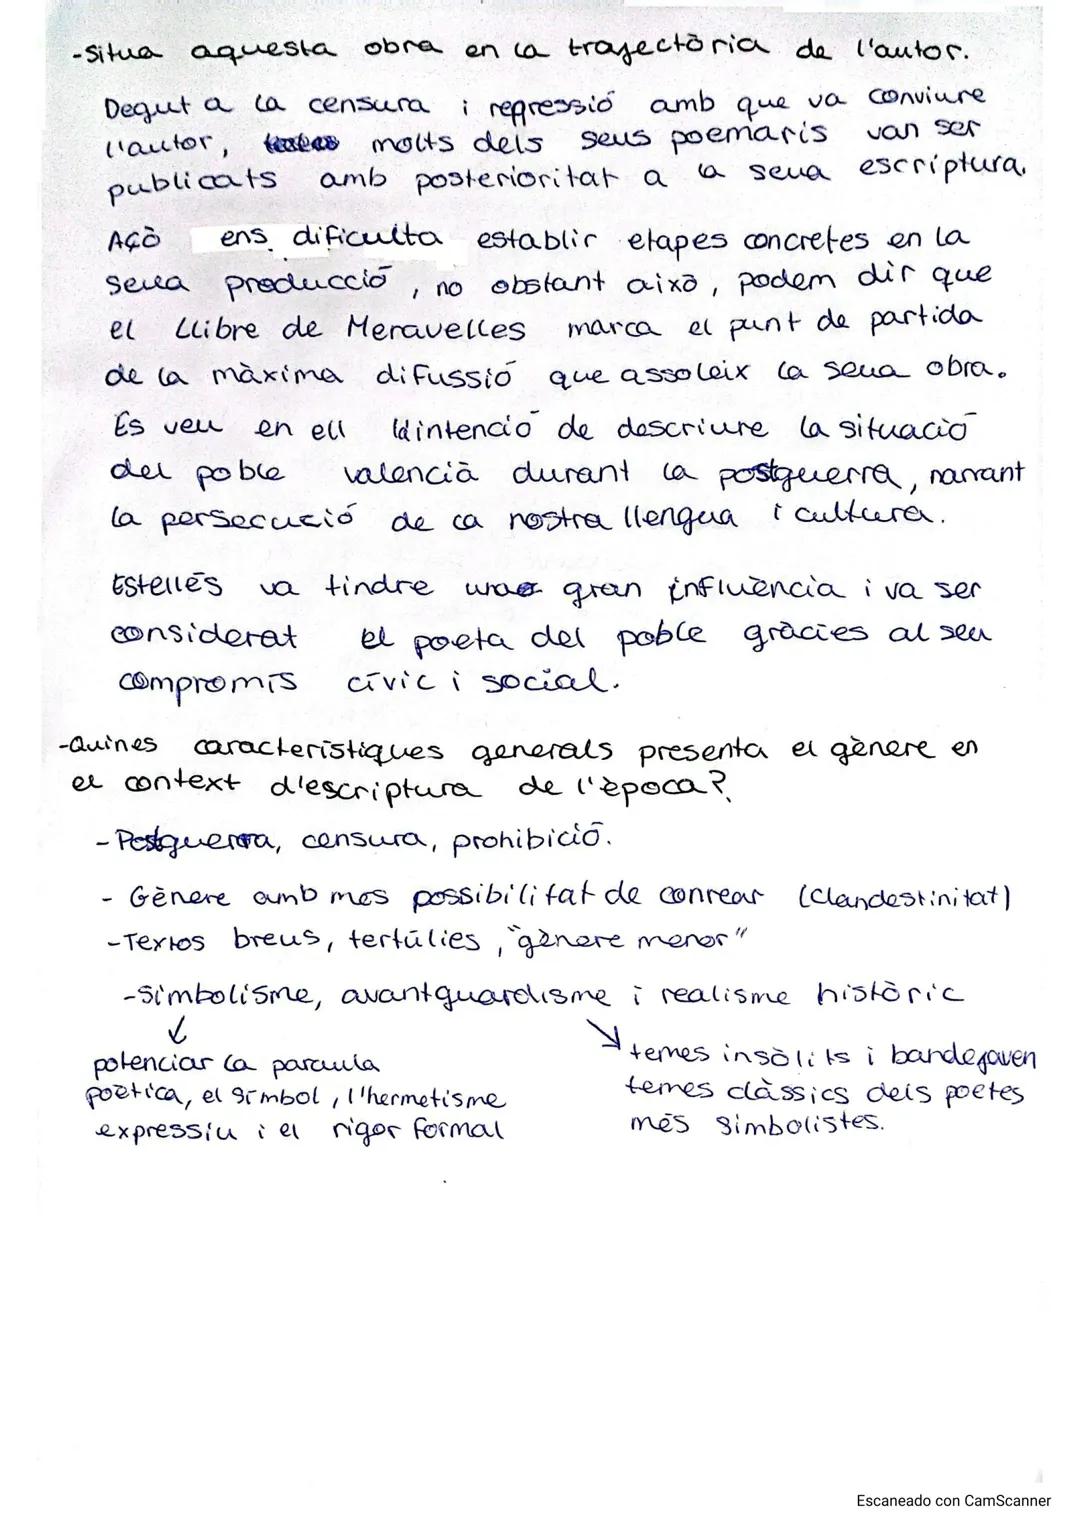 -Situa aquesta obra en la trajectòria de l'autor.
Degut a la censura i repressió amb que va conviure
l'autor, molts dels seus poemaris van ser
publicats amb posterioritat a la seua escriptura.
Açò ens dificulta establir etapes concretes en la
seua producció, no obstant això, podem dir que
el Llibre de Meravelles marca el punt de partida
de la màxima difussió que assoleix la seua obra.
Es veu en ell la intenció de descriure la situació
del poble valencià durant la postguerra, narrant
la persecució de la nostra llengua i cultura.
Estellés va tindre una gran influència i va ser
considerat el poeta del poble gràcies al seu
compromís cívic i social.
-Quines característiques generals presenta el gènere en
el context d'escriptura de l'època?
- Postguerra, censura, prohibició.
- Gènere amb mes possibilitat de conrear (clandestinitat)
-Textos breus, tertúlies, "gènere menor"
-Simbolisme, avantguardisme i realisme històric
↓ ↘
potenciar la paraula
poètica, el símbol, l'hermetisme
expressiu i el rigor formal
temes insòlits i bandejaven
temes clàssics dels poetes
més simbolistes.
Escaneado con CamScanner